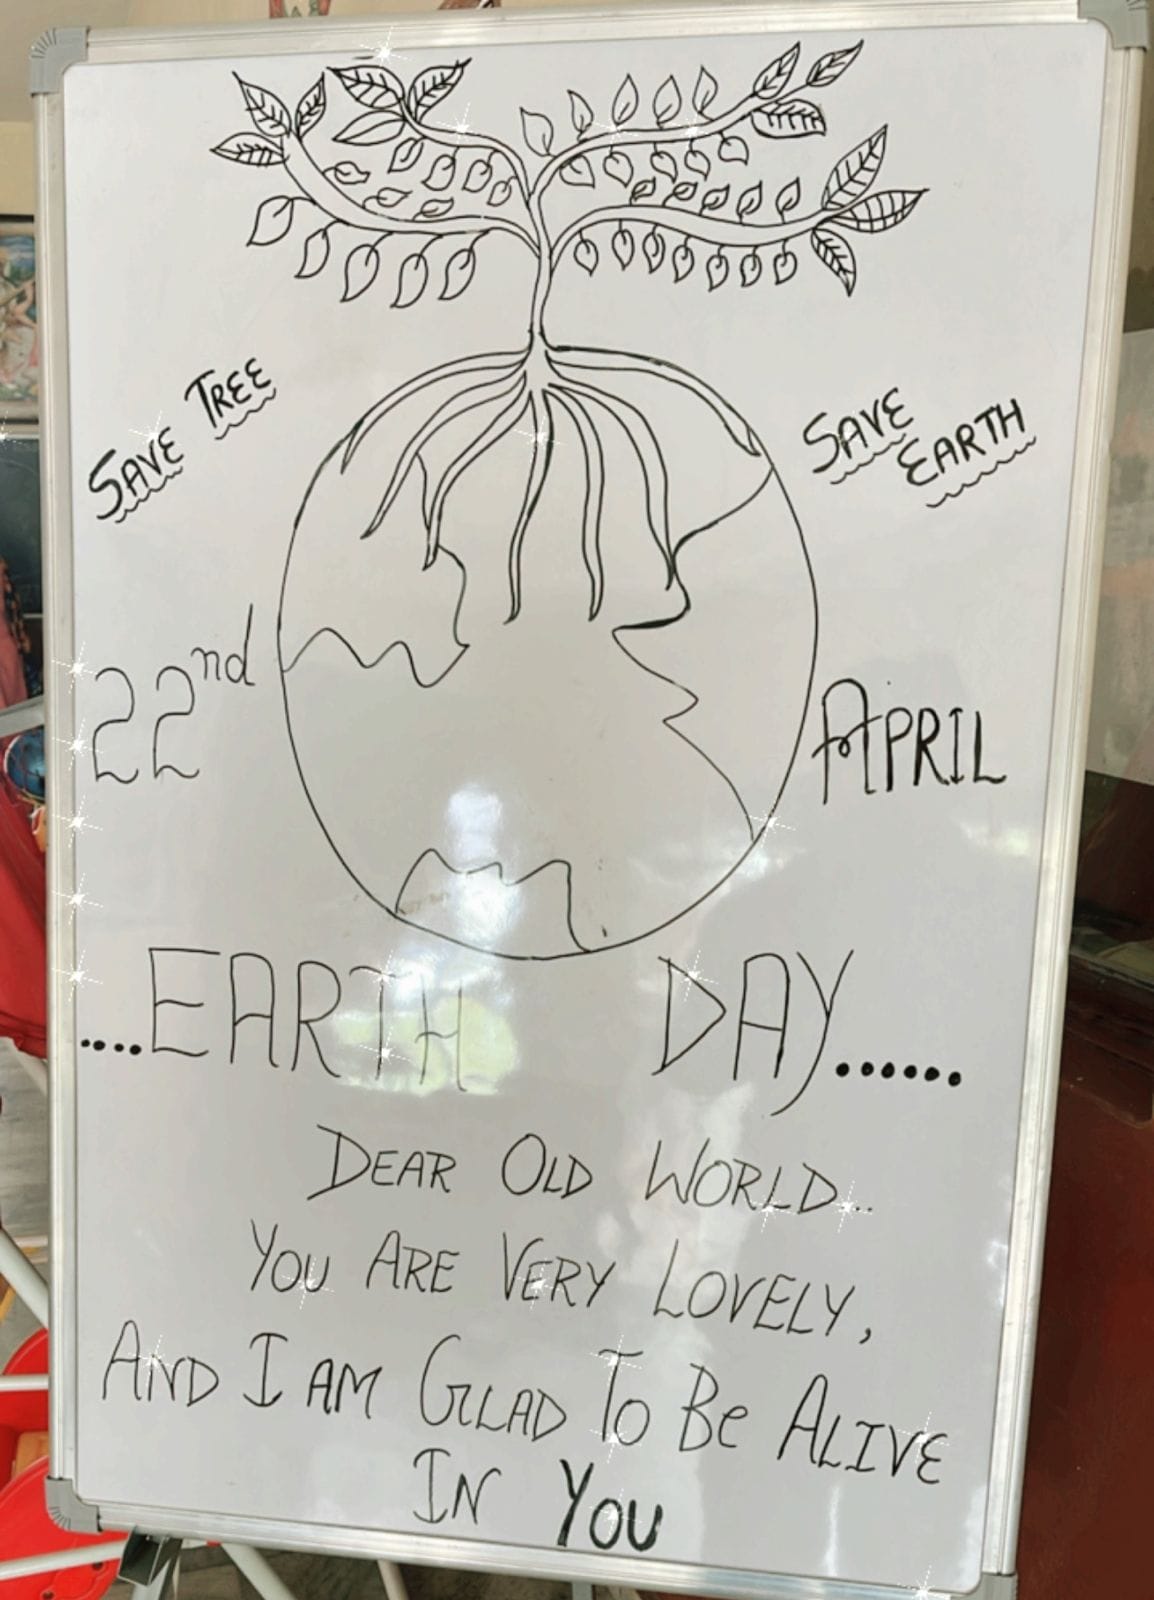 SAVE TREE
SAVE
EARTH
22nd
APRIL
....EARTH DAY......
DEAR OLD WORLD..
YOU ARE VERY LOVELY,
AND I AM GLAD TO BE ALIVE
IN YOU